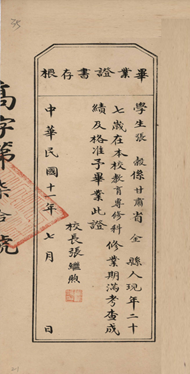 畢業證書存根
學生張 毅係甘肅省 全 縣人現年二十
七歲在本校教育專修科修業期滿考查成
績及格准予畢業此證
校長張繼煦
中華民國十一年 七月 日
高字第柒 號